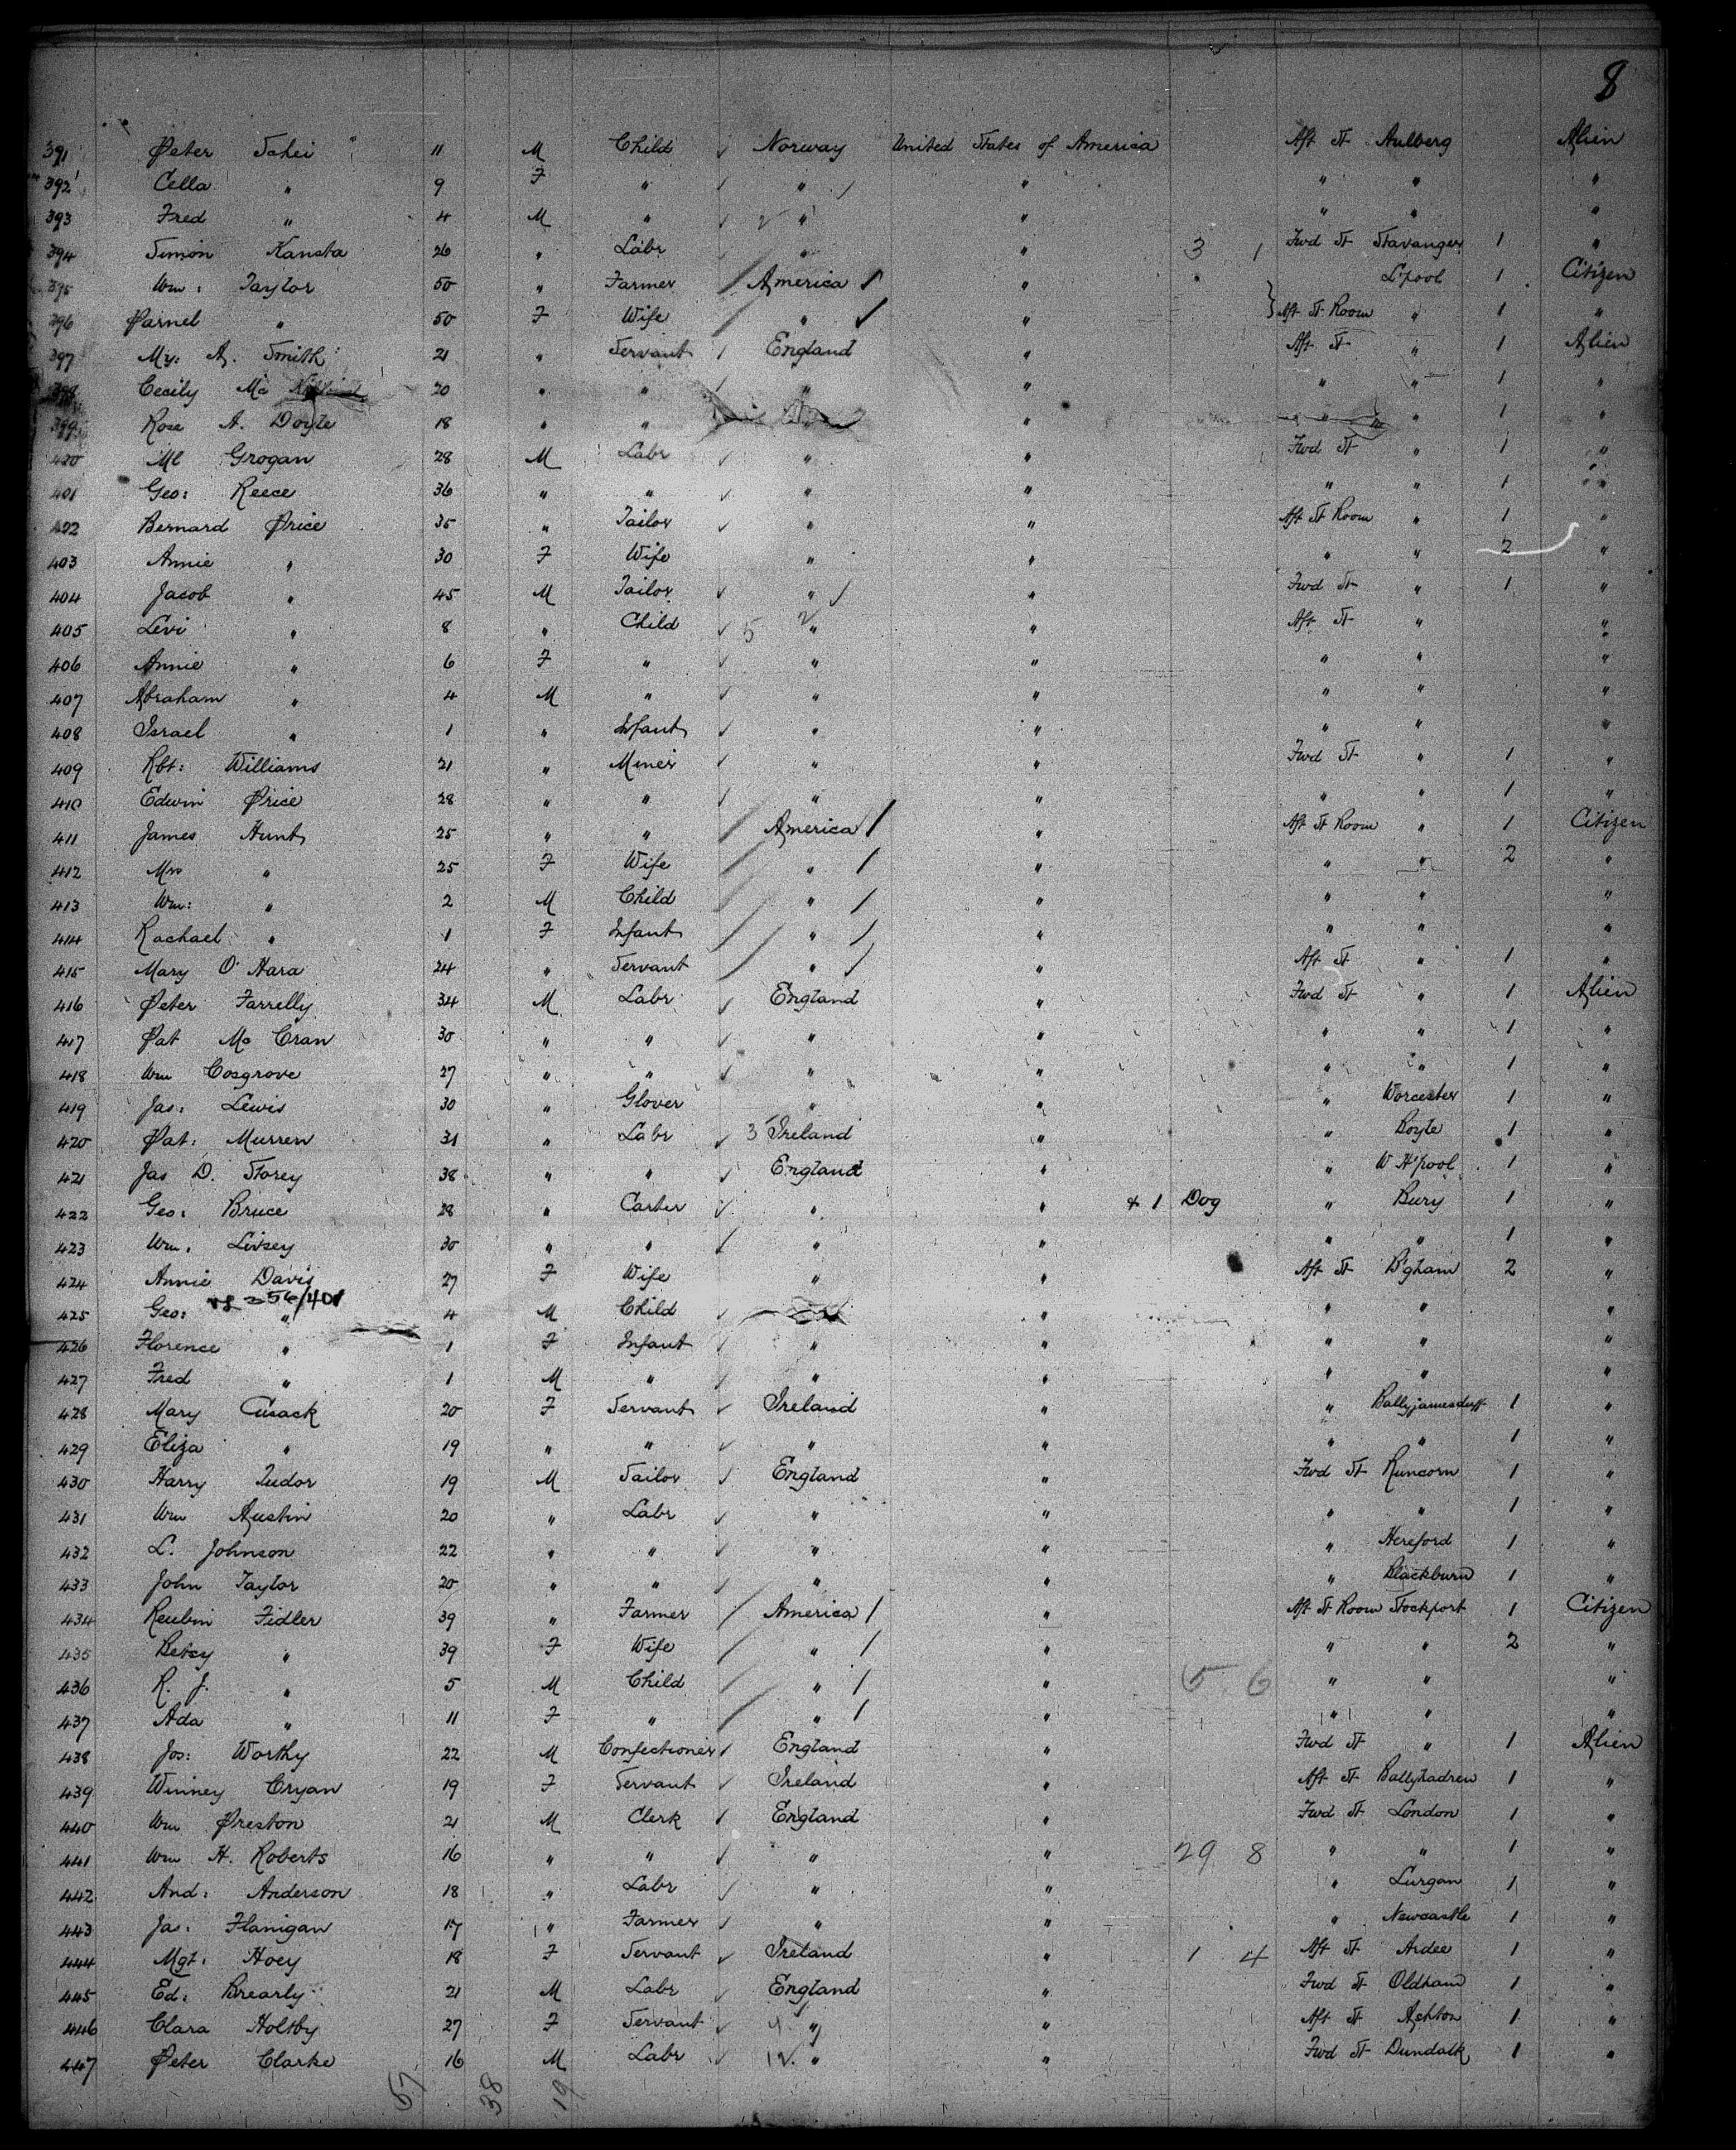 8
391 Peter Schei " 11 M Child Norway United States of America Aft St Aulberg Alien
392 Cella " 9 F " " " " " "
393 Fred " 4 M " " " " " "
394 Simon Kansta 26 " Labr " " 3 1 Fwd St Stavanger 1 "
395 Wm: Taylor 50 " Farmer America " L'pool 1 Citizen
396 Parnel " 50 F Wife " " Aft St Room " 1 "
397 My: A. Smith 21 " Servant England " Aft St " 1 Alien
398 Cecily Mc 20 " " " " " " 1 "
399 Rose A. Doyle 18 " " " " " 1 "
400 Ml Grogan 28 M Labr " " Fwd St " 1 "
401 Geo: Reece 36 " " " " " " 1 "
402 Bernard Price 35 " Tailor " " Aft St Room " 1 "
403 Annie " 30 F Wife " " " " 2 "
404 Jacob " 45 M Tailor " " Fwd St " 1 "
405 Levi " 8 " Child 5 " " Aft St " "
406 Annie " 6 F " " " " " "
407 Abraham " 4 M " " " " " "
408 Israel " 1 " Infant " " " " "
409 Rbt: Williams 21 " Miner " " Fwd St " 1 "
410 Edwin Price 28 " " " " " " 1 "
411 James Hunt 25 " " America " Aft St Room " 1 Citizen
412 Mrs " 25 F Wife " " " " 2 "
413 Wm: " 2 M Child " " " " "
414 Rachael " 1 F Infant " " " " "
415 Mary O'Hara 24 " Servant " " Aft St " 1 "
416 Peter Farrelly 34 M Labr England " Fwd St " 1 Alien
417 Pat Mc Cran 30 " " " " " " 1 "
418 Wm Cosgrove 27 " " " " " " 1 "
419 Jas: Lewis 30 " Glover " " " Worcester 1 "
420 Pat: Murren 31 " Labr 3 Ireland " " Boyle 1 "
421 Jas D. Storey 38 " " England " " W H'pool 1 "
422 Geo: Bruce 28 " Carter " " & 1 Dog " Bury 1 "
423 Wm: Livsey 30 " " " " " " 1 "
424 Annie Davis 27 F Wife " " Aft St B'gham 2 "
425 Geo: " 4 M Child " " " "
426 Florence " 1 F Infant " " " " "
427 Fred " 1 M " " " " " "
428 Mary Cusack 20 F Servant Ireland " " Ballyjamesduff 1 "
429 Eliza " 19 " " " " " " 1 "
430 Harry Tudor 19 M Sailor England " Fwd St Runcorn 1 "
431 Wm Austin 20 " Labr " " " " 1 "
432 L. Johnson 22 " " " " " Hereford 1 "
433 John Taylor 20 " " " " " Blackburn 1 "
434 Reubin Fidler 39 " Farmer America " Aft St Room Stockport 1 Citizen
435 Betsy " 39 F Wife " " " " 2 "
436 R. J. " 5 M Child " " 5 6 " " "
437 Ada " 11 F " " " " " "
438 Jos: Worthy 22 M Confectioner England " Fwd St " 1 Alien
439 Winney Cryan 19 F Servant Ireland " Aft St Ballyhadren 1 "
440 Wm Preston 21 M Clerk England " Fwd St London 1 "
441 Wm H. Roberts 16 " " " " 29 8 " " 1 "
442 And: Anderson 18 " Labr " " " Lurgan 1 "
443 Jas: Flanigan 17 " Farmer " " " Newcastle 1 "
444 Mgt: Hoey 18 F Servant Ireland " 1 4 Aft St Ardee 1 "
445 Ed: Brearly 21 M Labr England " Fwd St Oldham 1 "
446 Clara Holtby 27 F Servant " " Aft St Ashton 1 "
447 Peter Clarke 16 M Labr " " Fwd St Dundalk 1 "
57 38 19